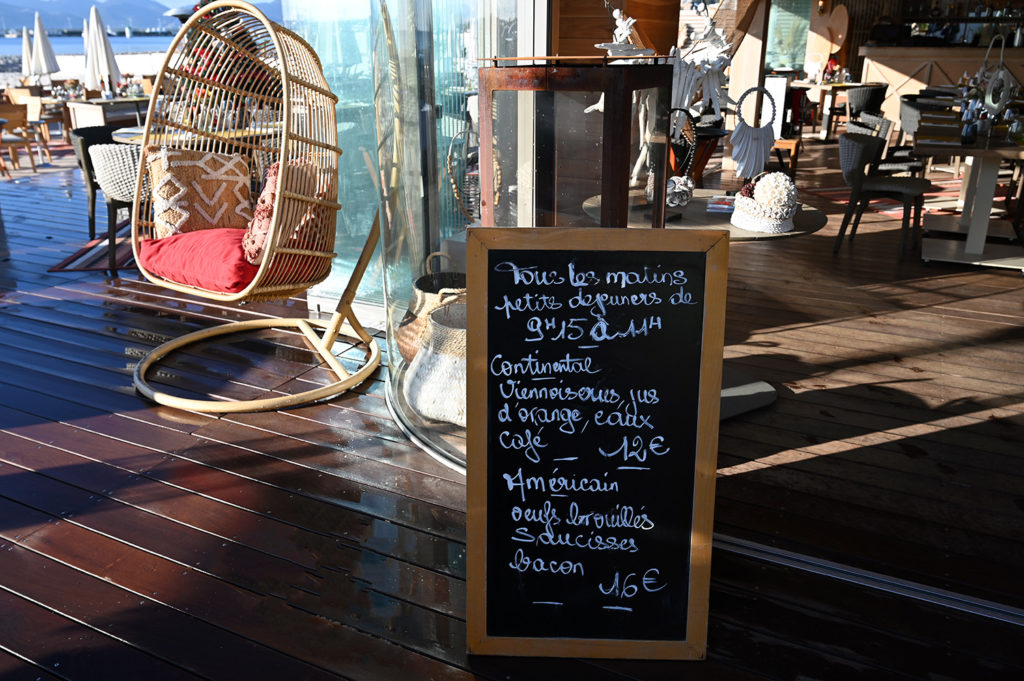 Tous les matins
petits dejeuners de
9H15 à 11H
Continental
Viennoiseries, jus
d'orange, eaux
café 12€
Américain
oeufs brouillés
Saucisses
bacon 16€